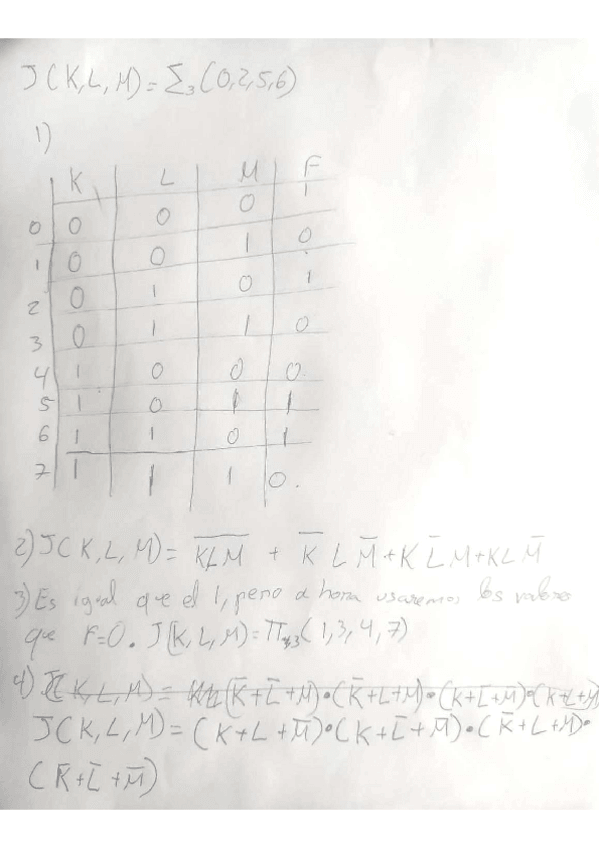 J(K,L,M)=Σ₃(0,2,5,6)
1)
K L M F
0 0 0 0 1
1 0 0 1 0
2 0 1 0 1
3 0 1 1 0
4 1 0 0 0.
5 1 0 1 1
6 1 1 0 1
7 1 1 1 0.
2) J(K,L,M)= K̅L̅M̅ + K̅ L M̅ + K L̅ M + K L M̅
3) Es igual que el 1, pero ahora usaremos los valores
que F=0. J(K,L,M)=Π₃(1,3,4,7)
4) J(K,L,M) = (K̅+L̅+M)•(K̅+L+M)•(K+L̅+M)•(K+L+M)
J(K,L,M)=(K+L+M̅)•(K+L̅+M̅)•(K̅+L+M)•
(K̅+L̅+M̅)